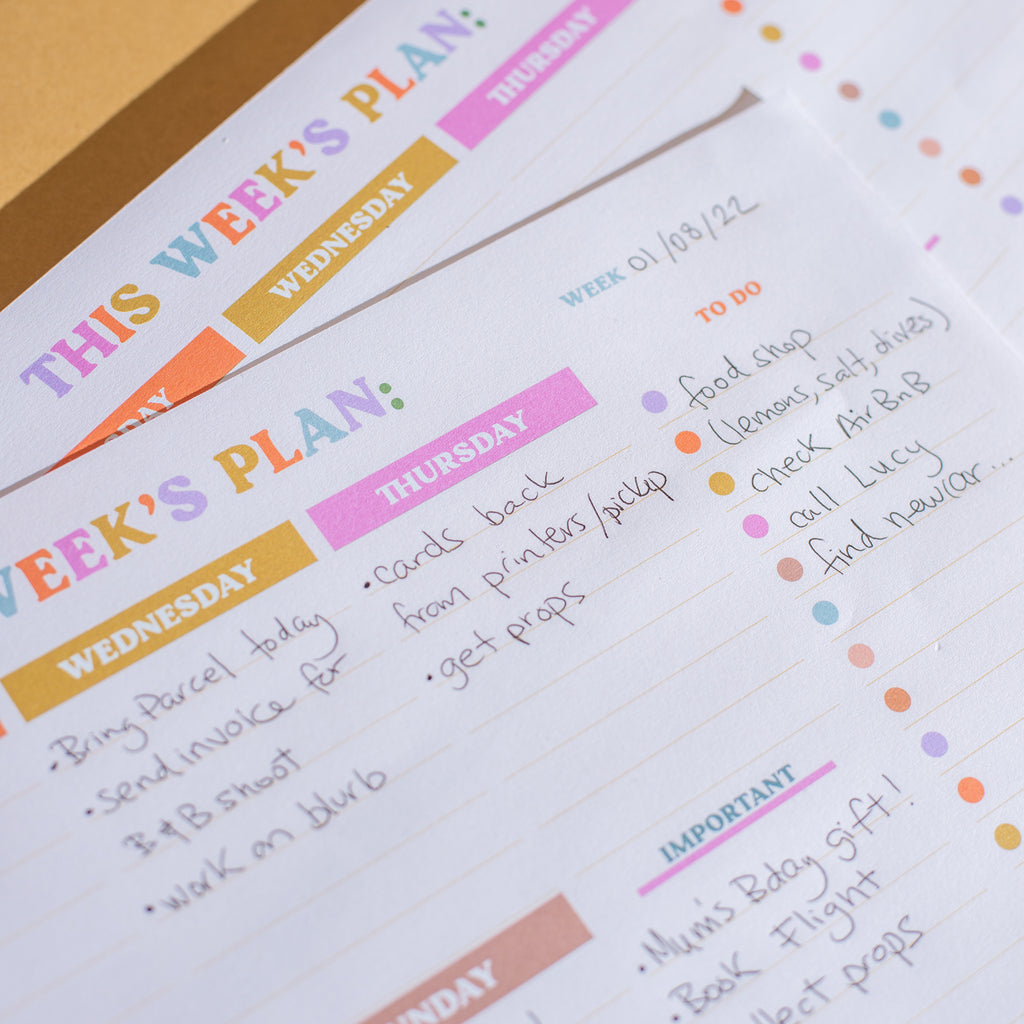 THIS WEEK'S PLAN:
WEDNESDAY
THURSDAY
WEEK'S PLAN:
WEEK 01/08/22
WEDNESDAY
• Bring Parcel today
• send invoice for
B & B shoot
• work on blurb
THURSDAY
• cards back
from printers/pickup
• get props
TO DO
food shop
(lemons, salt, olives)
check AirBnB
call Lucy
find new car...
IMPORTANT
• Mum's Bday gift!
• Book Flight
props